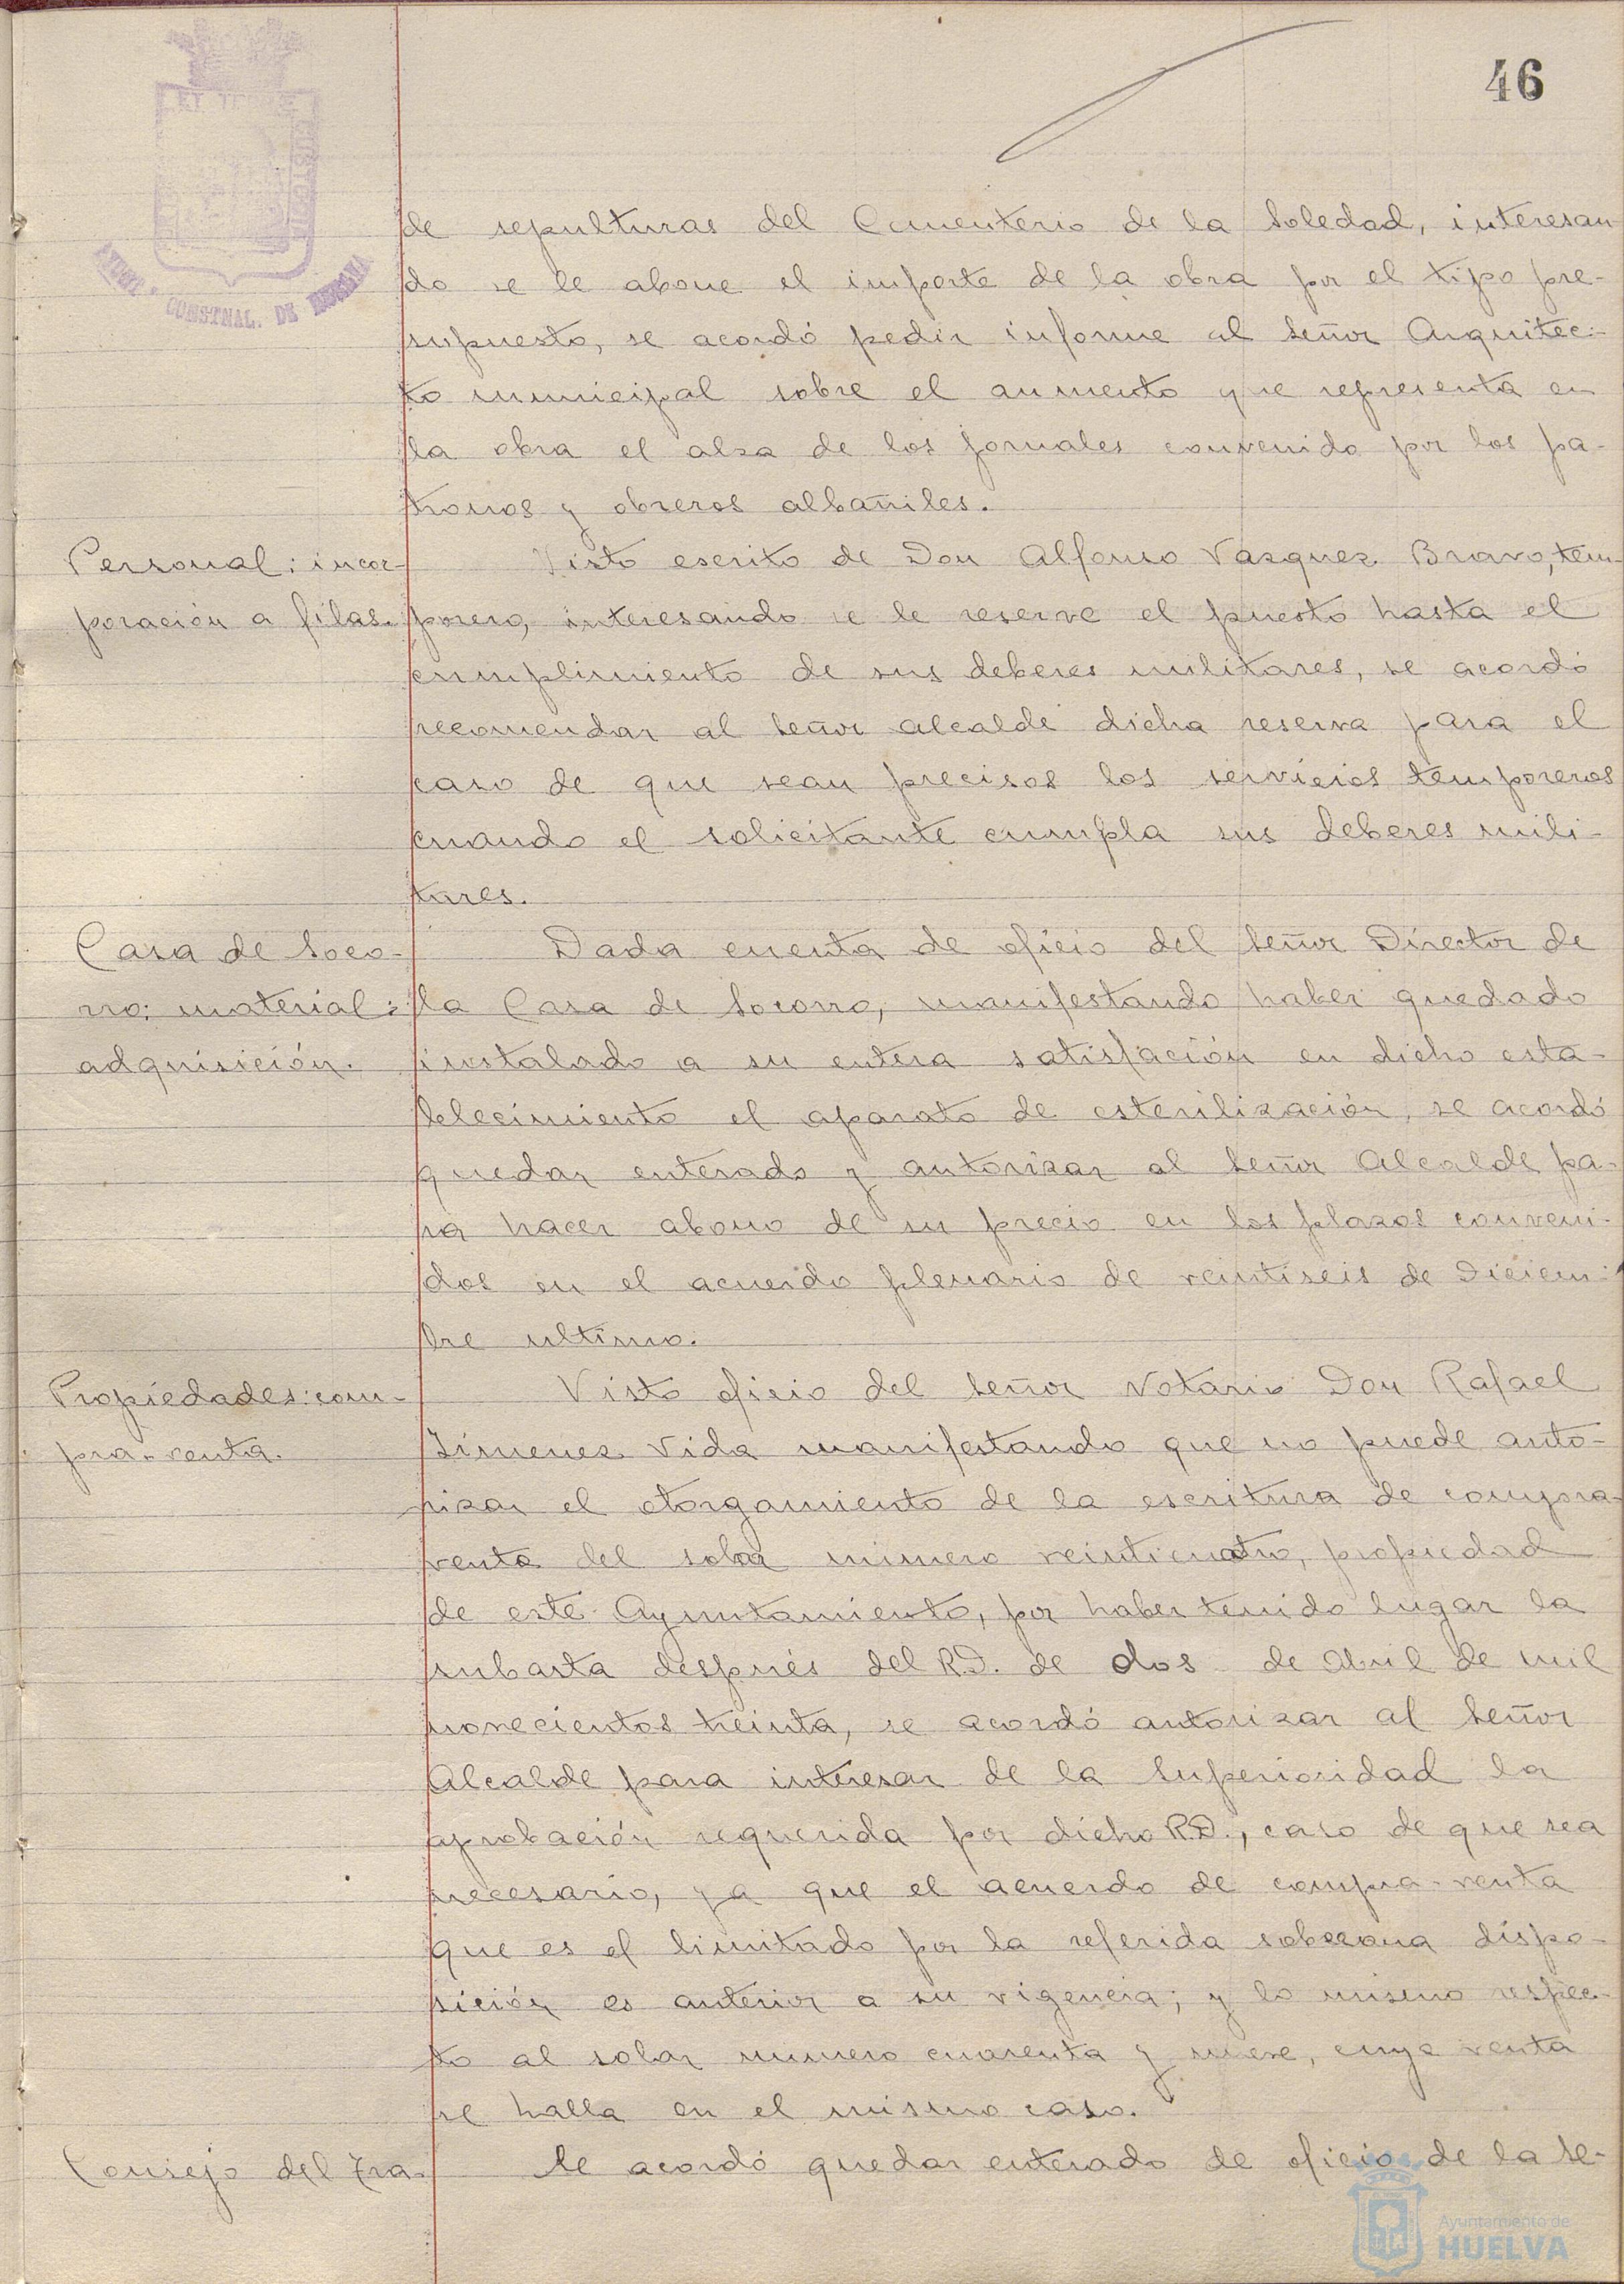 46
de sepulturas del Cementerio de la Soledad, interesan
do se le abone el importe de la obra por el tipo pre-
supuesto, se acordó pedir informe al Señor Arquitec-
to municipal sobre el aumento que representa en
la obra el alza de los jornales convenido por los pa-
tronos y obreros albañiles.
Personal: incor-
poración a filas.
Visto escrito de Don Alfonso Vazquez Bravo, tem-
porero, interesando se le reserve el puesto hasta el
cumplimiento de sus deberes militares, se acordó
recomendar al Señor Alcalde dicha reserva para el
caso de que sean precisos los servicios temporeros
cuando el solicitante cumpla sus deberes mili-
tares.
Casa de Soco-
rro: material:
adquisición.
Dada cuenta de oficio del Señor Director de
la Casa de Socorro, manifestando haber quedado
instalado a su entera satisfación en dicho esta-
blecimiento el aparato de esterilización, se acordó
quedar enterado y autorizar al Señor Alcalde pa-
ra hacer abono de su precio en los plazos conveni-
dos en el acuerdo plenario de veintiseis de Diciem-
bre ultimo.
Propiedades: com-
pra-venta.
Visto oficio del Señor Notario Don Rafael
Jimenez Vida manifestando que no puede auto-
rizar el otorgamiento de la escritura de compra-
venta del solar número veinticuatro, propiedad
de este Ayuntamiento, por haber tenido lugar la
subasta después del R.D. de dos de Abril de mil
novecientos treinta, se acordó autorizar al Señor
Alcalde para interesar de la Superioridad la
aprobación requerida por dicho R.D., caso de que sea
necesario, ya que el acuerdo de compra-venta
que es el limitado por la referida soberana dispo-
sición es anterior a su vigencia; y lo mismo respec-
to al solar numero cuarenta y nueve, cuya venta
se halla en el mismo caso.
Consejo del Tra-
Se acordó quedar enterado de oficio de la Se-
CONSTNAL. DE
Ayuntamiento de
HUELVA